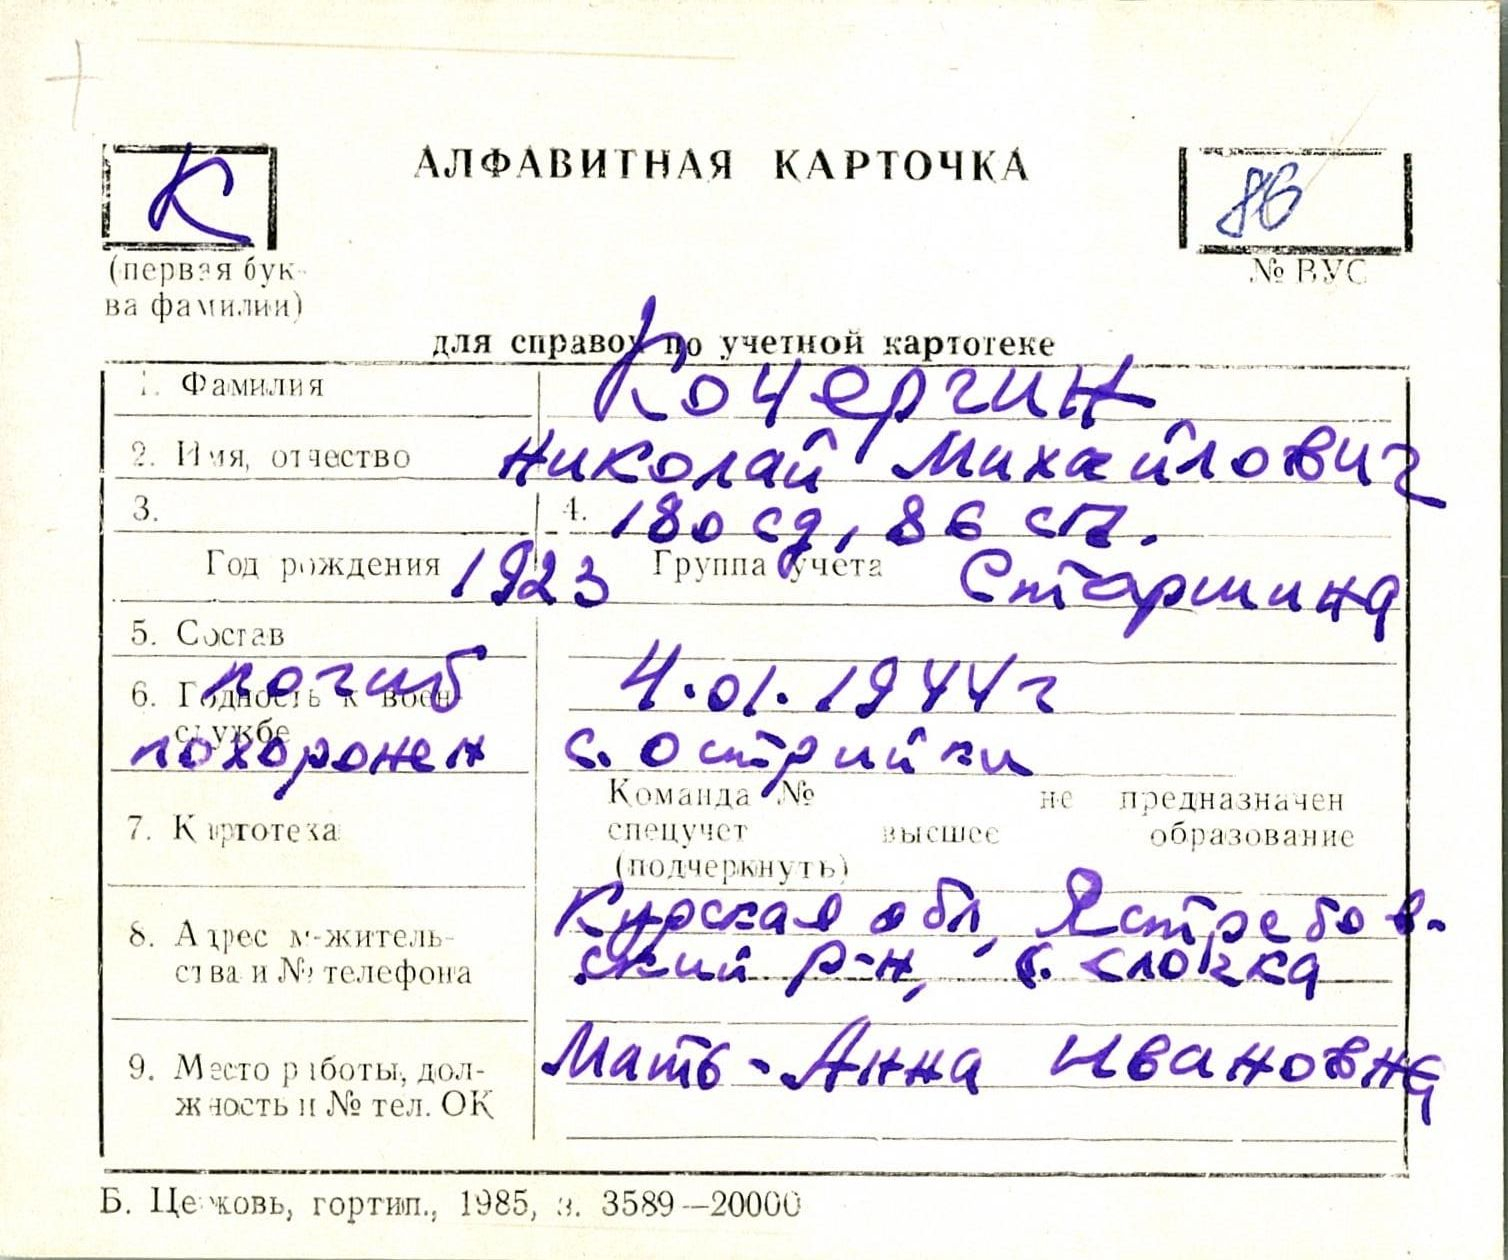 АЛФАВИТНАЯ КАРТОЧКА
К
86
(первая бук-
ва фамилии)
№ ВУС
для справок по учетной картотеке
1. Фамилия Кочергин
2. Имя, отчество Николай Михайлович
3. 4. 180 сд, 86 сп.
Год рождения 1923 Группа учета Старшина
5. Состав
погиб 4.01.1944г
6. Годность к воен-
службе
похоронен с. Острийки
Команда № не предназначен
7. Картотека спецучет высшее образование
(подчеркнуть)
Курская обл, Ястребов-
8. Адрес м-житель- ский р-н,
ства и № телефона
Мать - Анна Ивановна
9. Место работы, дол-
жность и № тел. ОК
Б. Церковь, гортип., 1985, з. 3589—20000